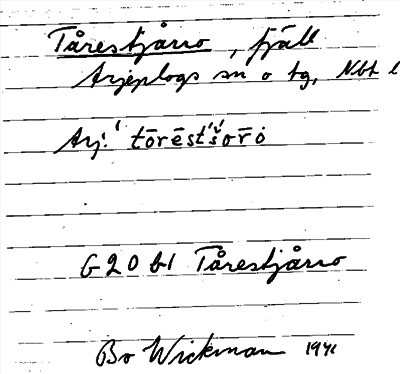 Tårestjåрro, fjäll
Arjeplogs sn o tg, Nbt l
Arj.
G20 bl Tårestjårro
Bo Wickman 1941